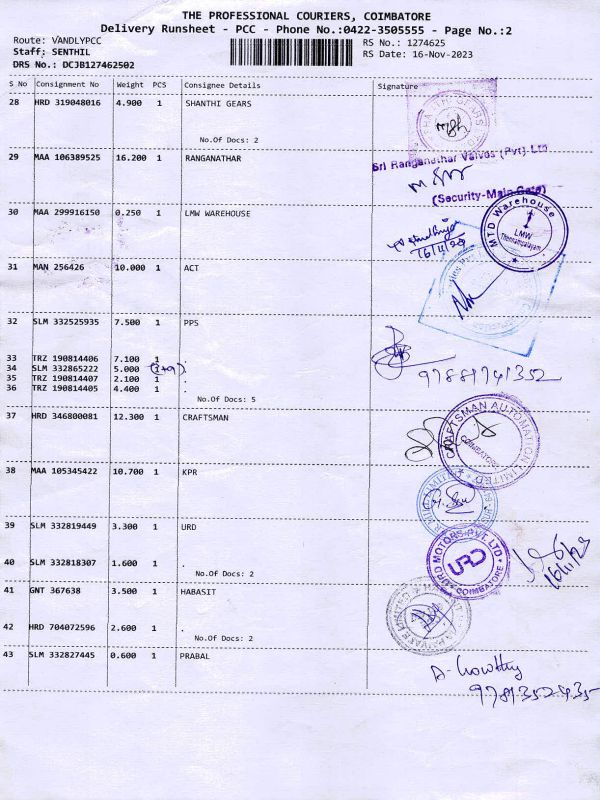 THE PROFESSIONAL COURIERS, COIMBATORE
Delivery Runsheet - PCC - Phone No.:0422-3505555 - Page No.:2
Route: VANDLYPCC
RS No.: 1274625
Staff: SENTHIL
RS Date: 16-Nov-2023
DRS No.: DCJB127462502
S No Consignment No Weight PCS Consignee Details Signature
28 HRD 319048016 4.900 1 SHANTHI GEARS
No.Of Docs: 2
29 MAA 106389525 16.200 1 RANGANATHAR
Sri Ranganathar Valves (Pvt) Ltd
(Security-Main Gate)
30 MAA 299916150 0.250 1 LMW WAREHOUSE
MTD Warehouse
LMW
16/11/23
31 MAN 256426 10.000 1 ACT
32 SLM 332525935 7.500 1 PPS
33 TRZ 190814406 7.100 1 .
34 SLM 332865222 5.000 .
35 TRZ 190814407 2.100 1 .
36 TRZ 190814405 4.400 1 .
No.Of Docs: 5
37 HRD 346800081 12.300 1 CRAFTSMAN
CRAFTSMAN AUTOMATION LIMITED
COIMBATORE
38 MAA 105345422 10.700 1 KPR
39 SLM 332819449 3.300 1 URD
URD MOTORS PVT. LTD
URD
COIMBATORE
16/11/23
40 SLM 332818307 1.600 1 .
No.Of Docs: 2
41 GNT 367638 3.500 1 HABASIT
42 HRD 704072596 2.600 1 .
No.Of Docs: 2
43 SLM 332827445 0.600 1 PRABAL